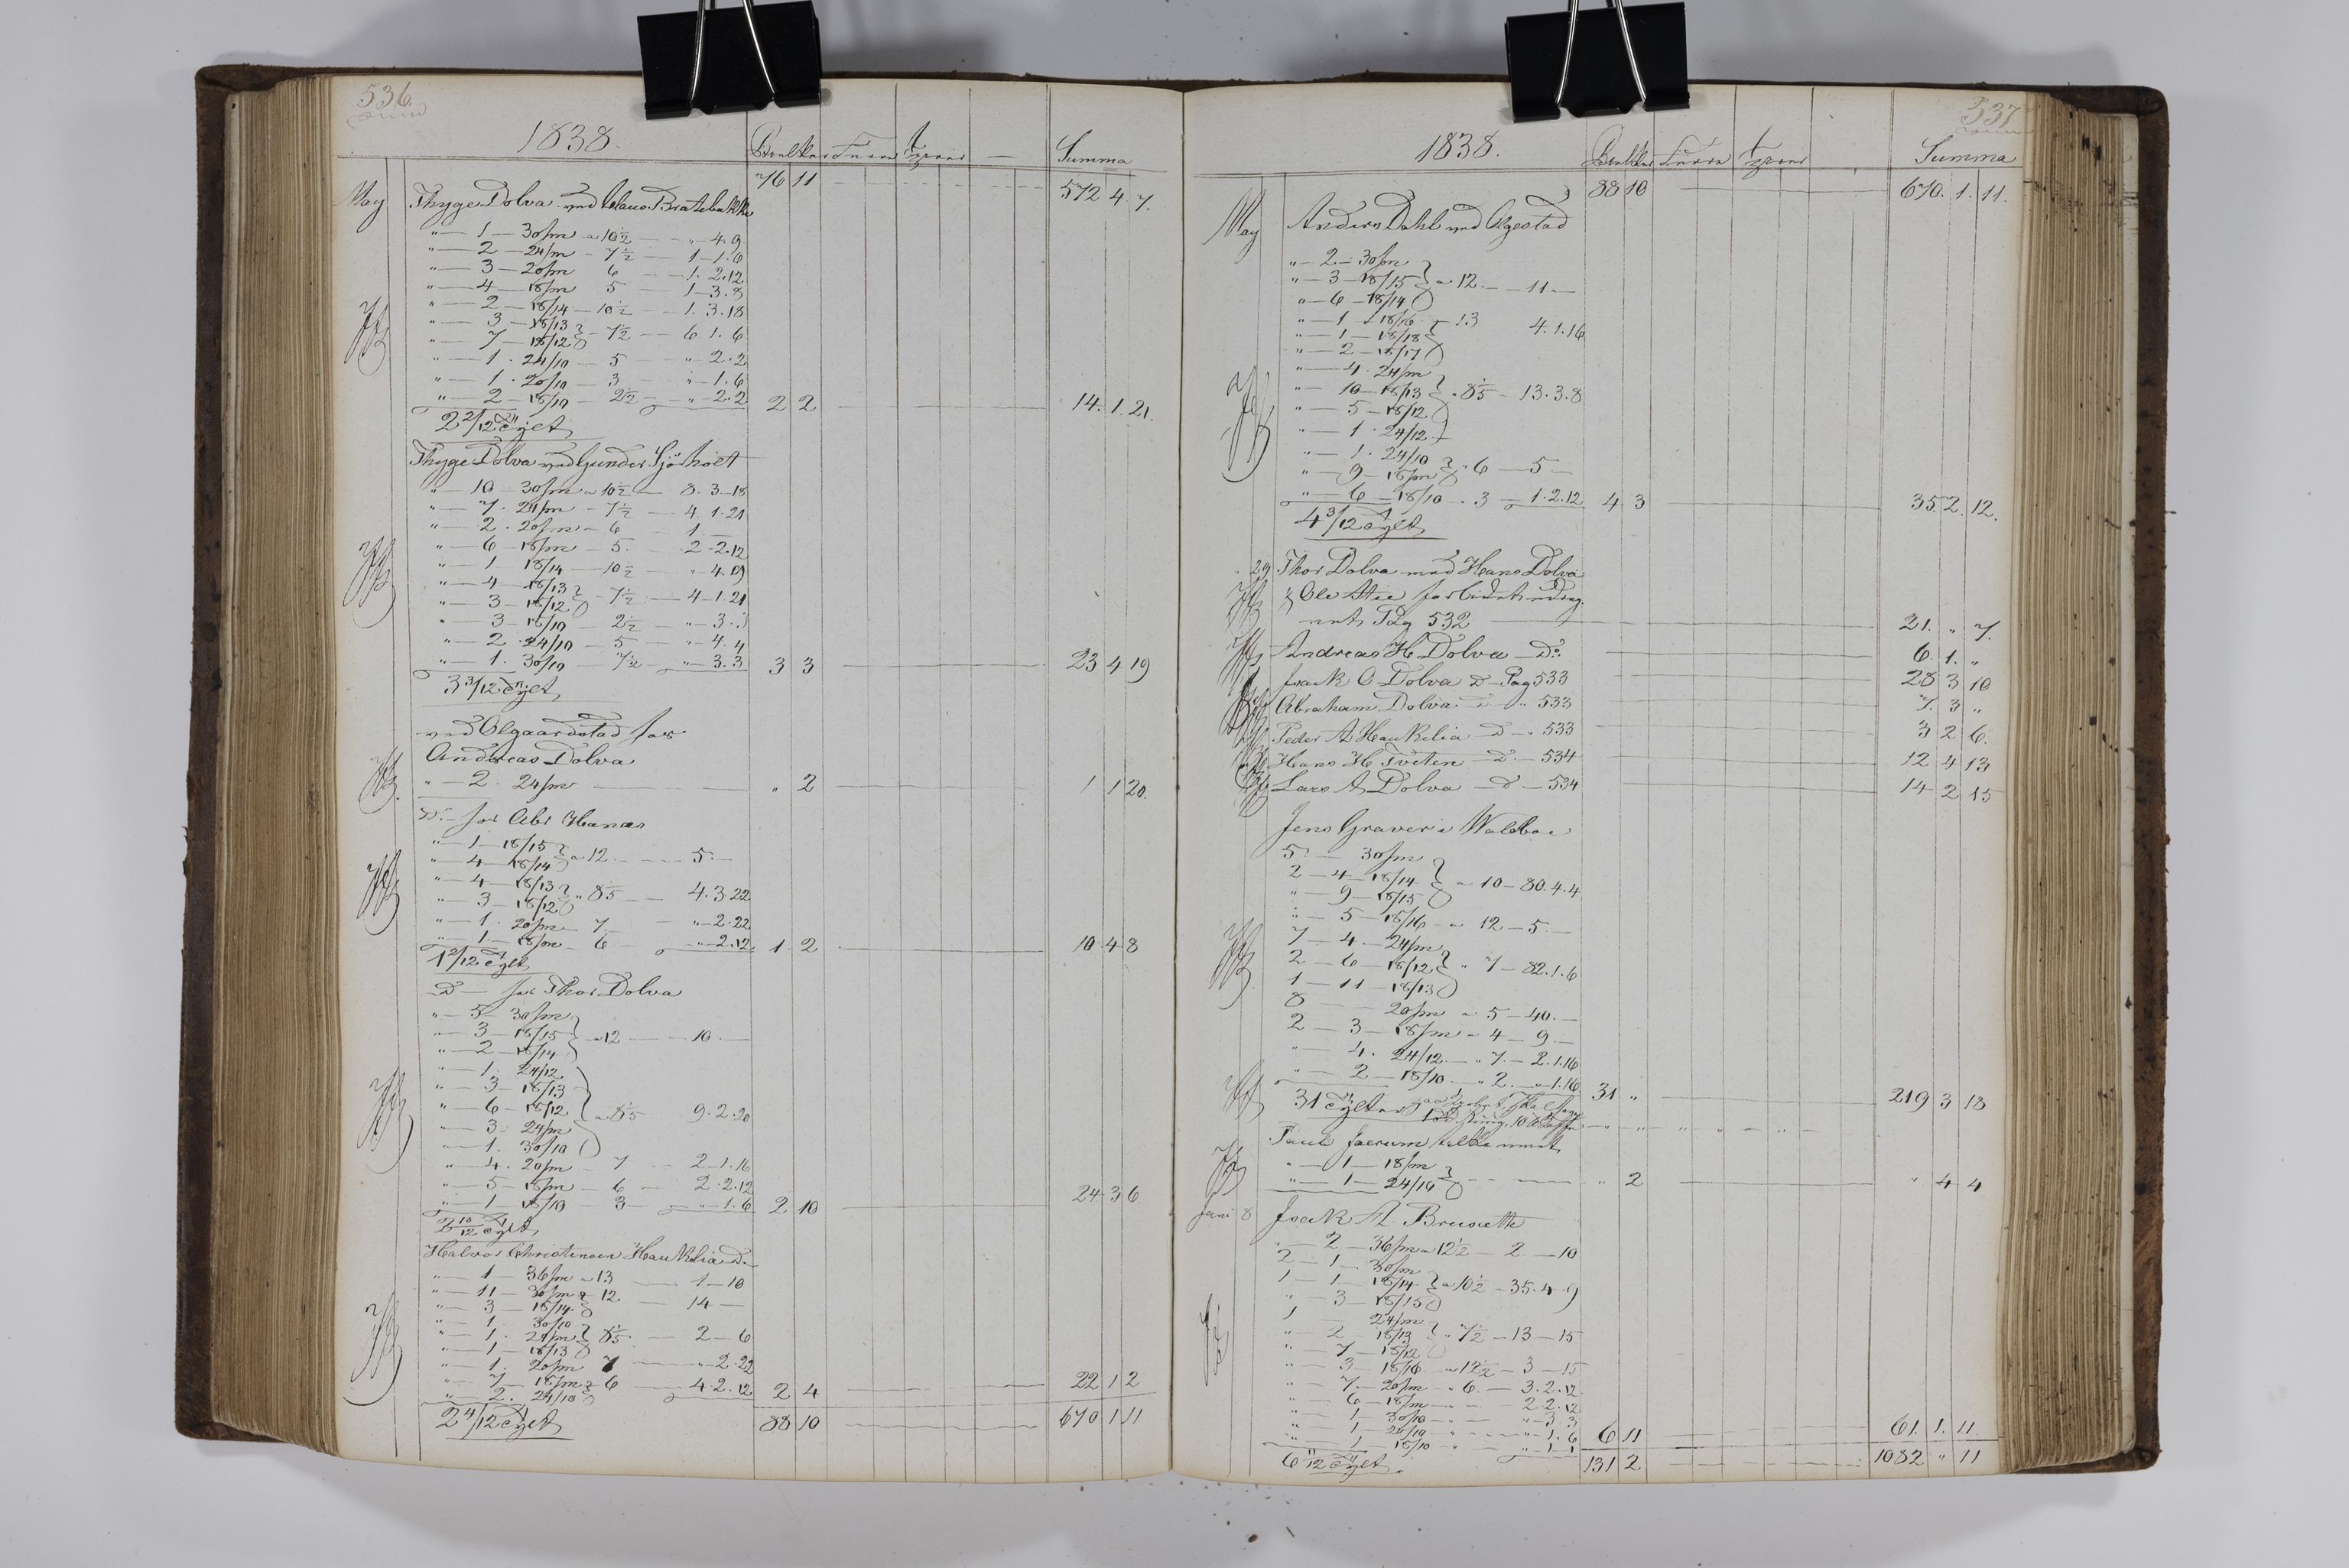 536
1838.
Summa
76 11 572 4 7.
May Thyge Dolva ved Claus Bratebakke
" 1 — 30/m a 10½ — " 4.9
" 2 — 24/m - 7½ — 1-1.6
" 3 — 20/m 6 — 1. 2.12
" 4 — 18/m 5 — 1-3.8
" 2 — 18/14 - 10½ — 1. 3.18
" 3 — 18/13
" 7 — 18/12 - 7½ — 6. 1. 6
" 1 . 24/10 — 5 " 2.2
" 1 . 20/10 — 3 " 1.6
" 2 — 18/10 — 2½ — " 2.2 2 2 14. 1. 21.
2 2/12 Tylt
Thyge Dolva ved Gunder Sjørholt
" 10 30/m a 10½ — 8. 3-18
" 7. 24/m - 7½ — 4. 1.21
" 2 . 20/m - 6 — 1. —
" 6 — 18/m — 5. — 2.2.12
" 1 18/14 — 10½ — " 4.9
" 4 — 18/13
" 3 — 18/12 - 7½ — 4-1.21
" 3 — 18/10 — 2½ — " 3.3
" 2 . 24/10 — 5 — " 4.4
" 1. 30/10 — 7½ " 3.3 3 3 23 4 19
3 3/12 Tylt
ved Olgaardstad for
Andreas Dolva
" 2. 24/m — " 2 1 1 20.
Do for Abr Hanas
" 1 — 18/15
" 4 — 18/14 a 12 — 5. —
" 4 — 18/13
" 3 — 18/12 " 8⅕ — 4.3.22
" 1. 20/m — 7. " 2.22
" 1 — 18/m — 6 " 2.12 1 2 10 4 8
1 2/12 Tylt
D — for Thor Dolva
" 5 — 30/m
" 3 — 18/15 a 12 — 10. —
" 2 — 18/14
" 1. 24/12
" 3 — 18/13
" 6 — 18/12 a 8⅕ 9.2.20
" 3. 24/m
" 1. 30/10
" 4. 20/m — 7 2-1.16
" 5 — 18/m — 6 — 2.2.12
" 1 — 18/10 — 3 — " 1.6 2 10 24 3 6
2 10/12 Tylt
Halvor Christensen Hauklia D
" 1 — 36/m a 13 — 1-10
" 11 — 30/m a 12
" 3 — 18/14 — 14 —
" 1. 30/10
" 1. 24/m 8⅕ — 2-6
" 1 — 18/13
" 1. 20/m 7 — " 2.22
" 7 — 18/m 6 — 4.2.12
" 2. 24/10 2 4 22 1 2
2 4/12 Tylt 88 10 670 1 11
537
1838.
Summa
88 10 670. 1. 11.
May Anders Dahl ved Olgestad
" 2 — 30/m
" 3 — 18/15 a 12. — 11 —
" 6 — 18/14
" 1 18/16 - 13 4.1.16
" 1 — 18/18
" 2 — 18/17
" 4. 24/m
" 10 — 18/13 " 8⅕ — 13.3.8
" 5 — 18/12
" 1. 24/12
" 1. 24/10
" 9 — 18/m " 6 — 5 —
" 6 — 18/10 - 3 — 1.2.12 4 3 35 2. 12.
4 3/12 Tylt
" 29 Thor Dolva med Hans Dolva
Pag 532 21. " 7.
Andreas H Dolva — Do 6. 1. "
Isack O Dolva D — Pag 533 28 3 10
Abraham Dolva D " 533 7. 3 "
Peder A Hauklia — D — " 533 3 2 6.
Hans H Tveten — Do — 534 12 4 13
Lars A Dolva — D — 534 14 2 15
Jens Graver i Waldboe
5. — 30/m
2 — 4 — 18/14 a 10 — 80.4.4
" 9 — 18/15
" 5 — 18/16 a 12 — 5. —
7 — 4. — 24/m
2 — 6 — 18/12 " 7 — 82.1.6
1 — 11 — 18/13
8 — 20/m a 5 — 40. —
2 — 3 — 18/m - 4 — 9. —
" 4. 24/12. — " 7. — 2.1.16
" 2 — 18/10 — " 2. — " 1.16 31 " 219 3 18
31 Tylter
" 1 — 18/m
" 1 — 24/10 — " 2 " 4 4
Juni 8 Isack A Brusætte
" 2 — 36/m a 12½ — 2 — 10
2 — 1 — 30/m
1 — 1 — 18/14 a 10½ — 35.4.9
" 3 — 18/15
1 24/m
" 2 18/13 " 7½ — 13 — 15
" 7 — 18/12
" 3 — 18/16 a 12½ — 3 — 15
" 7 — 20/m " 6. — 3.2.12
" 6 — 18/m — 2.2.12
" 1 — 30/10 — " 3.3
" 1 — 20/10 — " 1.6 6 11 61. 1. 11.
" 1 18/10 — " 1 1
6 11/12 Tylt 131 2 1082 " 11